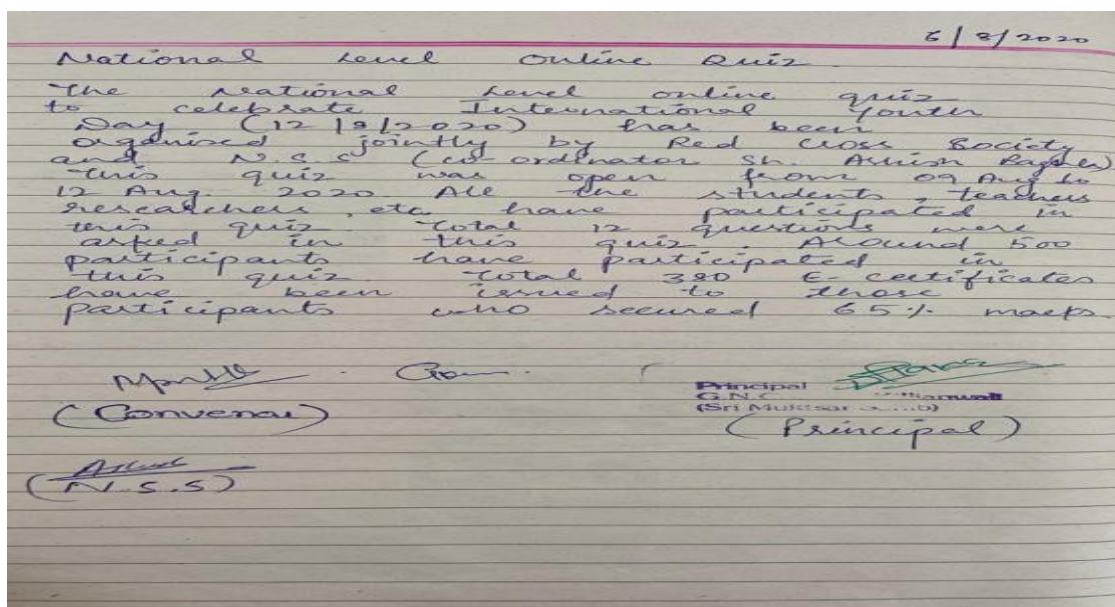 6/8/2020
National Level Online Quiz
The National Level online quiz
to celebrate International Youth
Day (12/8/2020) has been
organised jointly by Red Cross Society
and N.S.S (co-ordinator Sh. Ashish
this quiz was open from 09 Aug to
12 Aug. 2020 All the students, teachers
researchers, etc have participated in
this quiz. Total 12 questions were
asked in this quiz. Around 500
participants have participated in
this quiz. Total 380 E-certificates
have been issued to those
participants who secured 65% marks.
(Convenor)
Principal
G.N.C
(Sri Muktsar
(Principal)
(N.S.S)